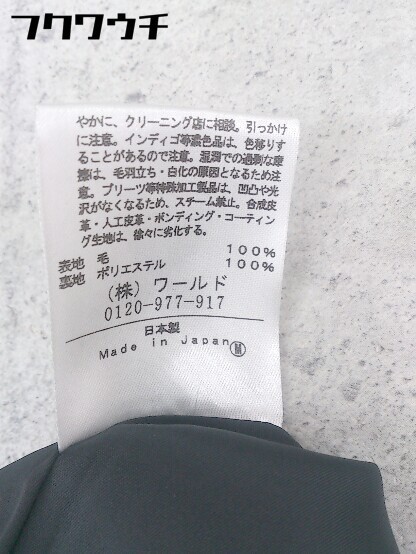 フクワウチ
やかに、クリーニング店に相談。引っかけ
に注意。インディゴ等濃色品は、色移りす
ることがあるので注意。湿潤での過剰な摩
擦は、毛羽立ち・白化の原因となるため注
意。プリーツ等特殊加工製品は、凹凸や光
沢がなくなるため、スチーム禁止。合成皮
革・人工皮革・ボンディング・コーティン
グ生地は、徐々に劣化する。
表地 毛 100%
裏地 ポリエステル 100%
(株) ワールド
0120-977-917
日本製
Made in Japan M